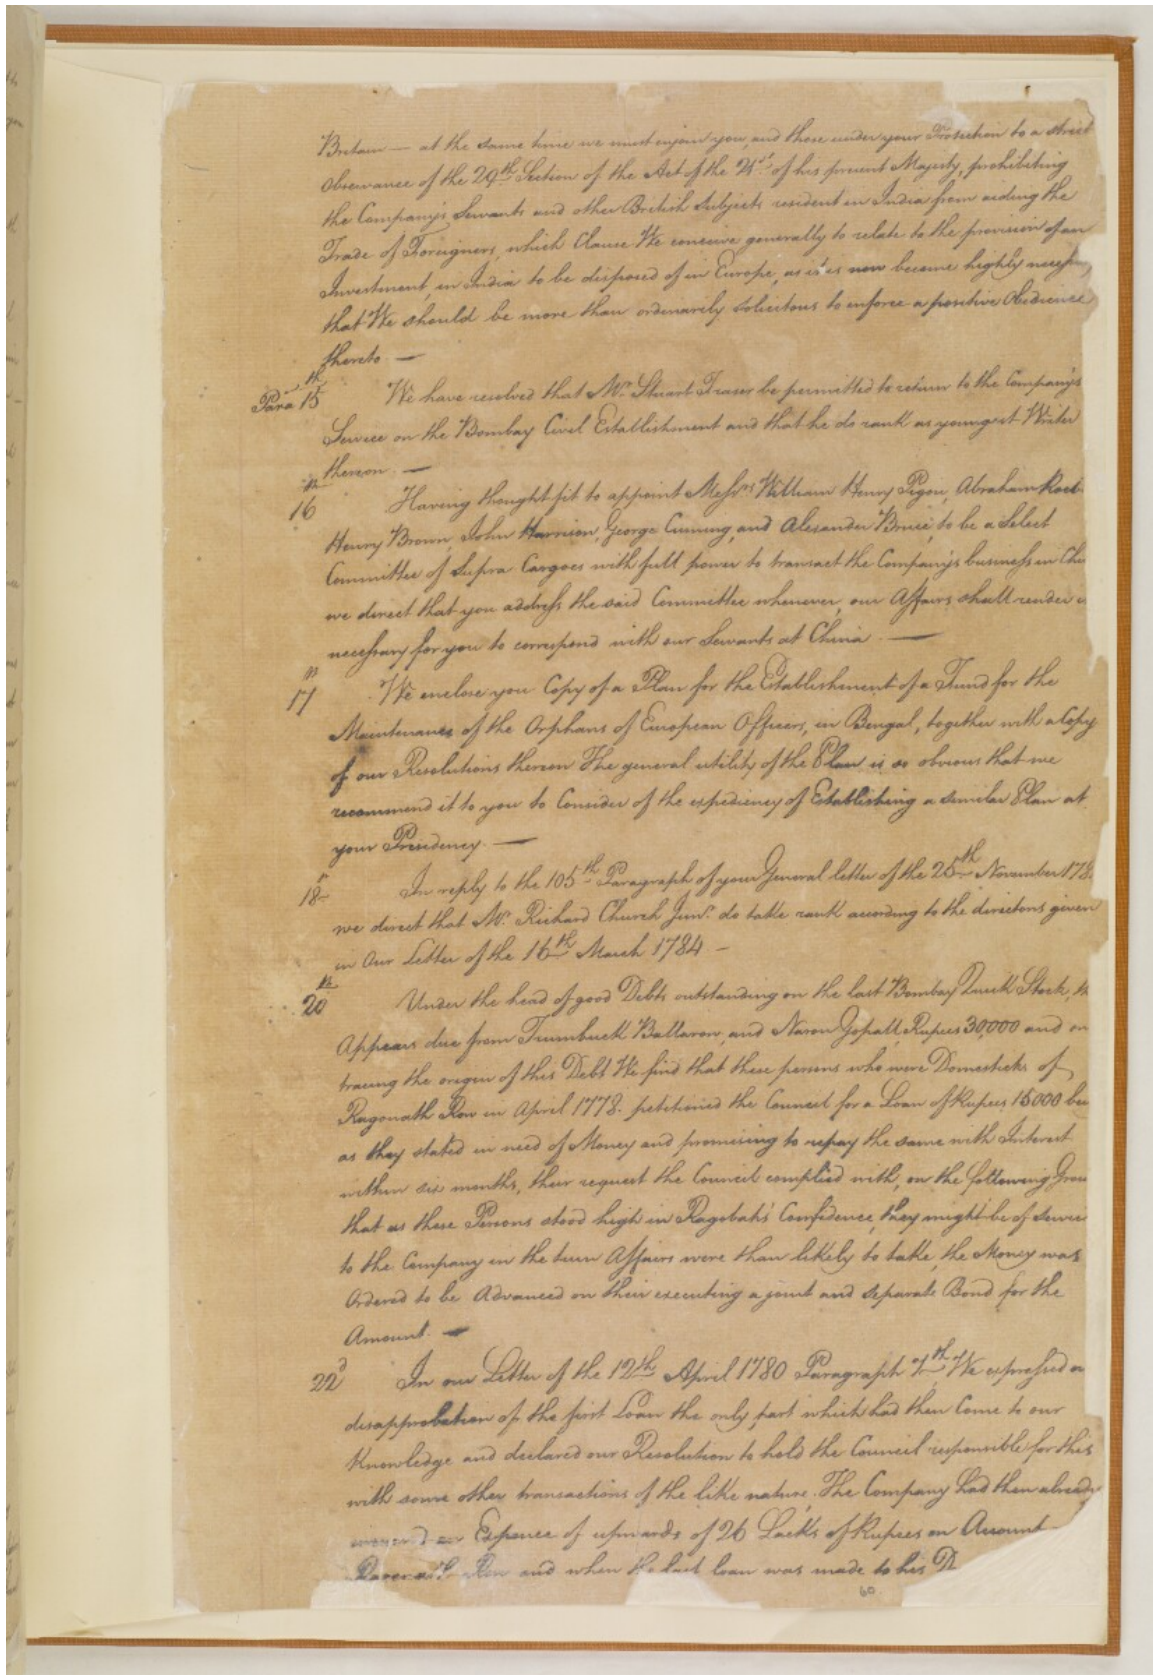 Britain — at the same time we must enjoin you, and those under your Protection to a strict
Observance of the 29th Section of the Act of the 21st of his present Majesty, prohibiting
the Company's Servants and other British Subjects resident in India from aiding the
Trade of Foreigners, which Clause We conceive generally to relate to the provision of an
Investment, in India to be disposed of in Europe, as it is now become highly necessary
that We should be more than ordenarily solicitous to enforce a positive Obedience
thereto. —
Para 15th We have resolved that Mr. Stuart Fraser be permitted to return to the Company's
Service on the Bombay Civil Establishment and that he do rank as youngest Writer
thereon. —
16th Having thought fit to appoint Messrs William Henry Pigou, Abraham Roeb
Henry Brown, John Harrison, George Cuming, and Alexander Bruce, to be a Select
Committee of Supra Cargoes with full power to transact the Company's business in Chi
we direct that you address the said Committee whenever, our Affairs shall render i
necessary for you to correspond with our Servants at China. —
17th We enclose you Copy of a Plan for the Establishment of a Fund for the
Maintenance of the Orphans of European Officers, in Bengal, together with a Copy
of our Resolutions thereon The general utility of the Plan is so obvious that we
recommend it to you to Consider of the expediency of Establishing a similar Plan at
your Presidency. —
18 In reply to the 105th Paragraph of your General letter of the 25th November 178
we direct that Mr. Richard Church Junr. do take rank according to the directions given
in Our Letter of the 16th March 1784 —
20th Under the head of good Debts outstanding on the last Bombay Quick Stock, th
Appears due from Trumbuck Ballarow, and Naron Gopall, Rupees 30,000 and on
tracing the origin of this Debt We find that these persons who were Domesticks of
Ragonath Row in April 1778. petitioned the Council for a Loan of Rupees 15000 bei
as they stated in need of Money and promising to repay the same with Interest
within six months, their request the Council complied with, on the following Grou
that as these Persons stood high in Ragobah's Confidence, they might be of Servic
to the Company in the turn Affairs were than likely to take, the Money was
Ordered to be Advanced on their executing a joint and separate Bond for the
Amount. —
22d In our Letter of the 12th April 1780 Paragraph 7th We expressed ou
disapprobation of the first Loan the only part which had then Come to our
Knowledge and declared our Resolution to hold the Council responsible for this
with some other transactions of the like nature. The Company had then already
an Expence of upwards of 26 Lacks of Rupees on Account
Row and when the last loan was made to his D
60